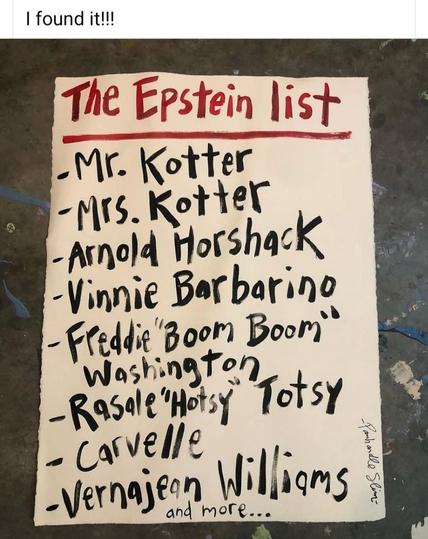 I found it!!!
The Epstein list
-Mr. Kotter
-Mrs. Kotter
-Arnold Horshack
-Vinnie Barbarino
-Freddie "Boom Boom"
Washington
-Rasale "Hotsy" Totsy
- Carvelle
-Vernajean Williams
and more...
-Panhandle Slim-